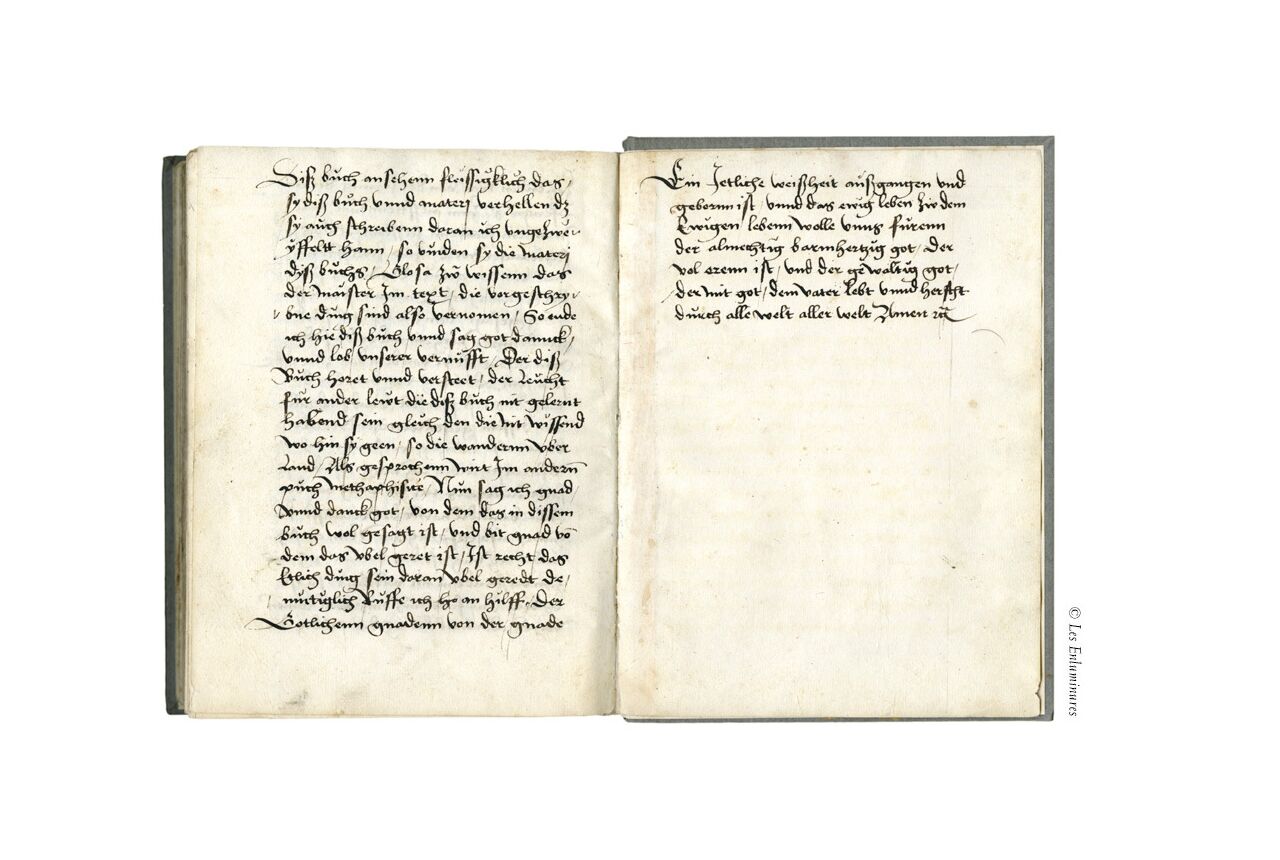 Diß buch ansehenn fleissigklich das,
sy diß buch vnnd materj verhellen dz
sy auch schreibenn daran ich vngezwe-
yffeltt hann, so vinden sy die materj
dyß buchs, Glosa zw wissenn das
der maister Im text, die vorgeschry-
bne ding sind also vernomen, So ende
ich hie diß buch vnnd sag got dannck,
vnnd lob vnserer vernufft, Der diß
Buch horet vnnd versteet, der leucht
fur ander lewt die diß buch nit gelernt
habend sein gleich den die nit wissend
wo hin sy geen, so die wandernn vber
Land, Als gesprochenn wirt Im andern
puch methaphisice, Nun sag ich gnad,
vnnd danck got, von dem das in dissem
buch wol gesagt ist, vnd bit gnad vo
dem das vbel geret ist, Ist recht das
Etlich ding sein daran vbel geredt de,
mutiglich Ruffe ich ho an hilff, der
Gotlichenn gnadenn von der gnade
Ein Jetliche weißheit außgangen vnd
gebornn ist, vnnd das ewig leben zw dem
Ewigen lebenn wolle vnns furenn
der almechtig barmhertzig got, der
vol erenn ist, vnd der gewaltig got,
der mit got, dem vater lebt vnnd herscht
durch alle welt aller welt Amen
© Les Enluminures